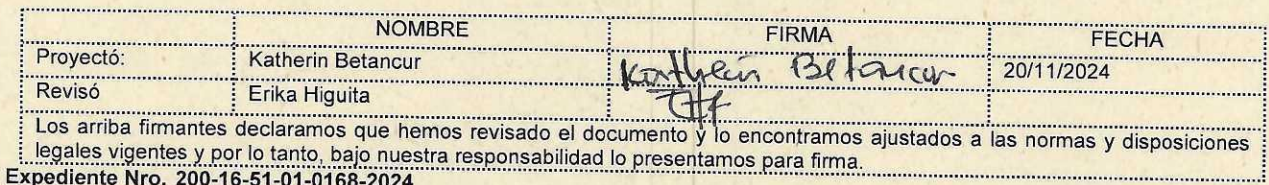 NOMBRE FIRMA FECHA
Proyectó: Katherin Betancur Katherin Betancur 20/11/2024
Revisó Erika Higuita
Los arriba firmantes declaramos que hemos revisado el documento y lo encontramos ajustados a las normas y disposiciones
legales vigentes y por lo tanto, bajo nuestra responsabilidad lo presentamos para firma.
Expediente Nro. 200-16-51-01-0168-2024